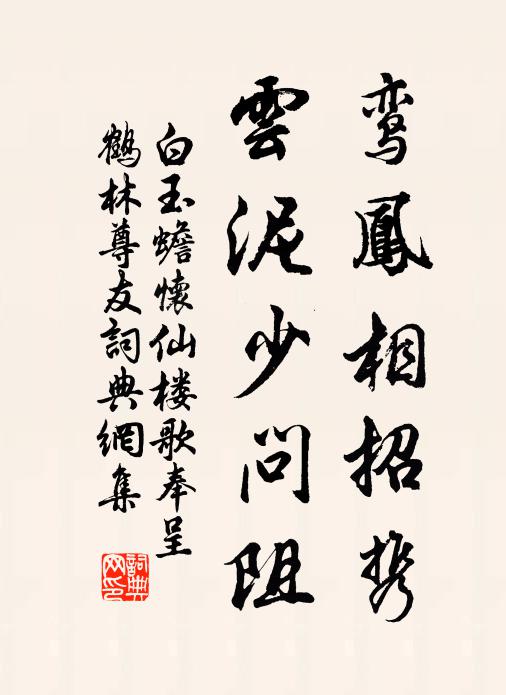 鸾鳳相招携
雲泥少問阻
白玉蟾懷仙楼歌奉呈
鶴林尊友詞典網集
詞典网印